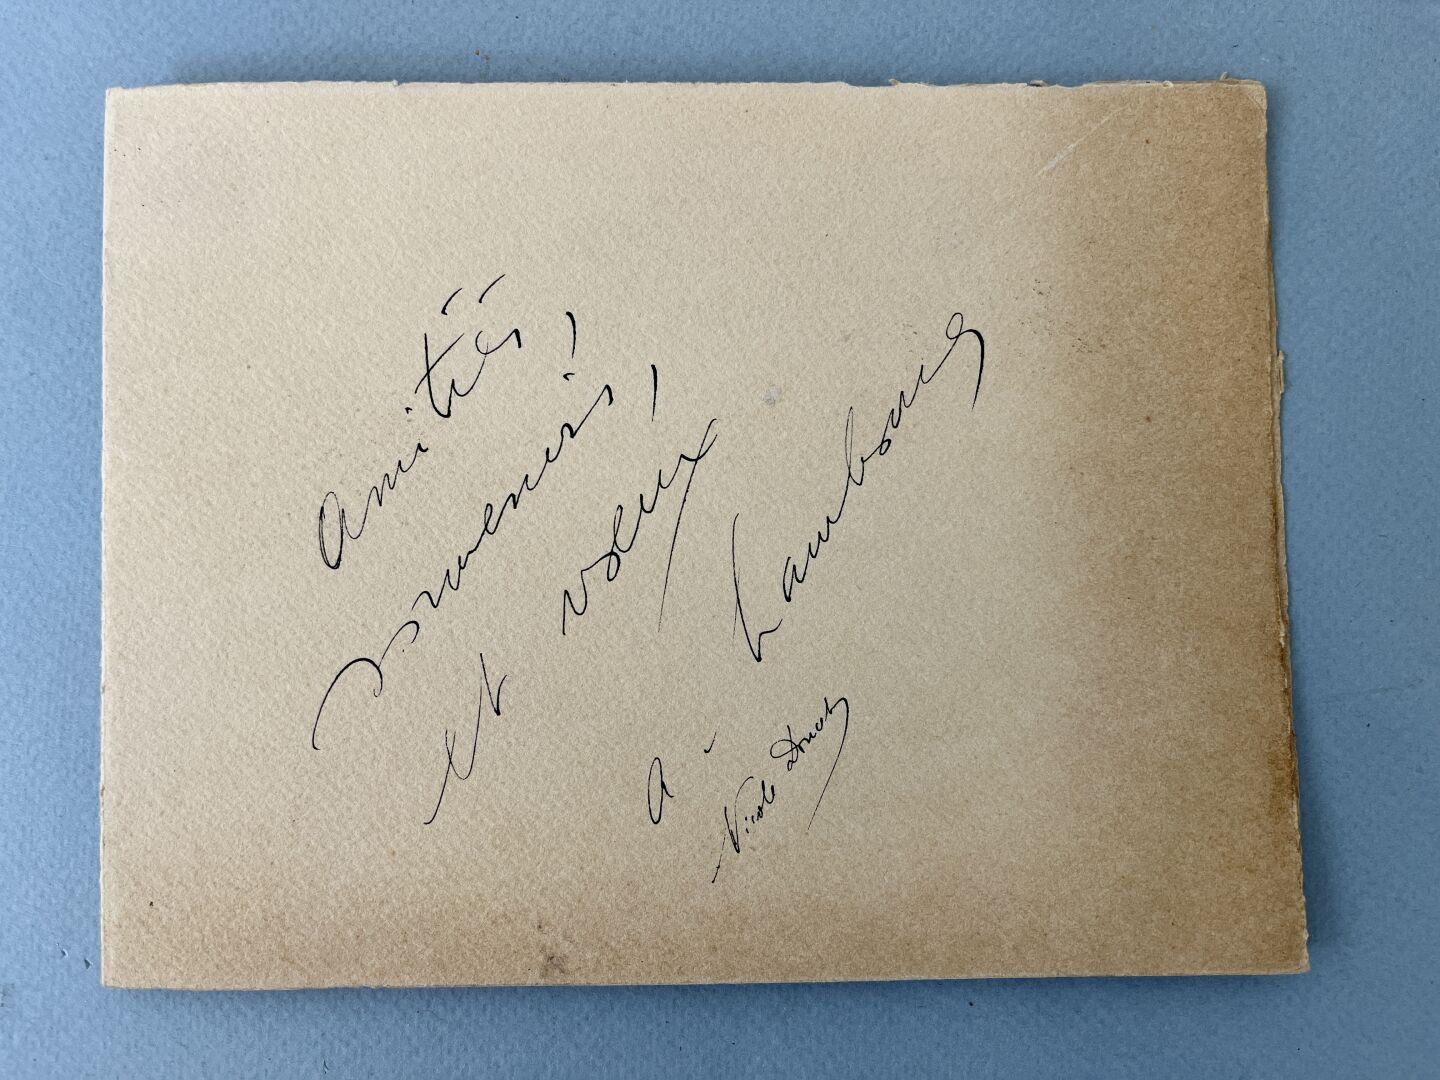 Amitiés,
souvenirs,
et voeux
à Lambours
Nicole Doucet